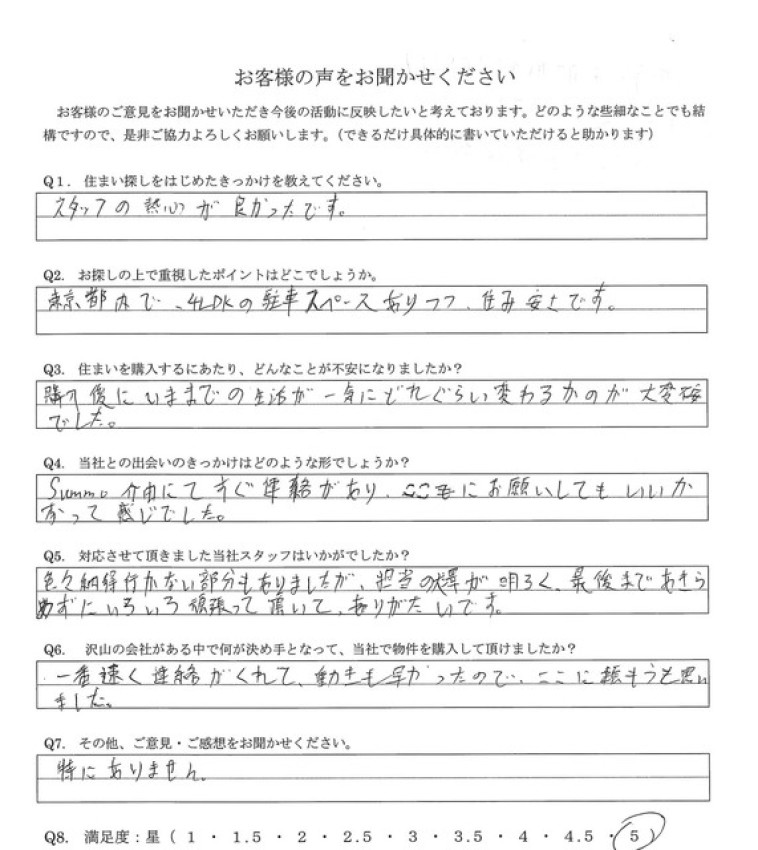 お客様の声をお聞かせください
お客様のご意見をお聞かせいただき今後の活動に反映したいと考えております。どのような些細なことでも結
構ですので、是非ご協力よろしくお願いします。(できるだけ具体的に書いていただけると助かります)
Q1. 住まい探しをはじめたきっかけを教えてください。
スタッフの熱心が良かったです。
Q2. お探しの上で重視したポイントはどこでしょうか。
東京都内で、4LDKの駐車スペースありつつ、住み安さです。
Q3. 住まいを購入するにあたり、どんなことが不安になりましたか？
購入後にいままでの生活が一気にどれぐらい変わるかのが大変
でした。
Q4. 当社との出会いのきっかけはどのような形でしょうか？
Summo 介由にてすぐ連絡があり、ここにお願いしてもいいか
なって感じでした。
Q5. 対応させて頂きました当社スタッフはいかがでしたか？
色々納得行かない部分もありましたが、担当の様が明るく、最後まであきら
めずにいろいろ頑張って頂いて、ありがたいです。
Q6. 沢山の会社がある中で何が決め手となって、当社で物件を購入して頂けましたか？
一番速く連絡がくれて、動きも早かったので、ここに頼もうと思い
ました。
Q7. その他、ご意見・ご感想をお聞かせください。
特にありません。
Q8. 満足度：星 ( 1 ・ 1.5 ・ 2 ・ 2.5 ・ 3 ・ 3.5 ・ 4 ・ 4.5 ・ 5 )